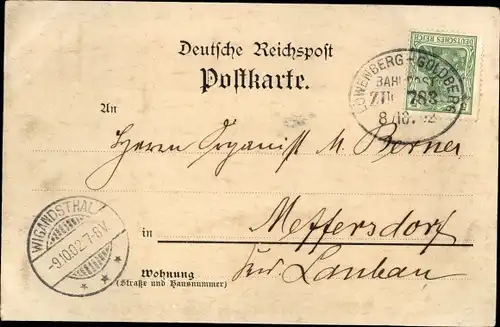 Deutsche Reichspost
Postkarte.
DEUTSCHES REICH
LÖWENBERG - GOLDBERG
BAHNPOST
ZUG 783
8/10. 02
An
Herrn Organist M. Berner
in
Meffersdorf
bei Lauban
WIGANDSTHAL
-9.10.02.7-8V.
Wohnung
(Straße und Hausnummer)